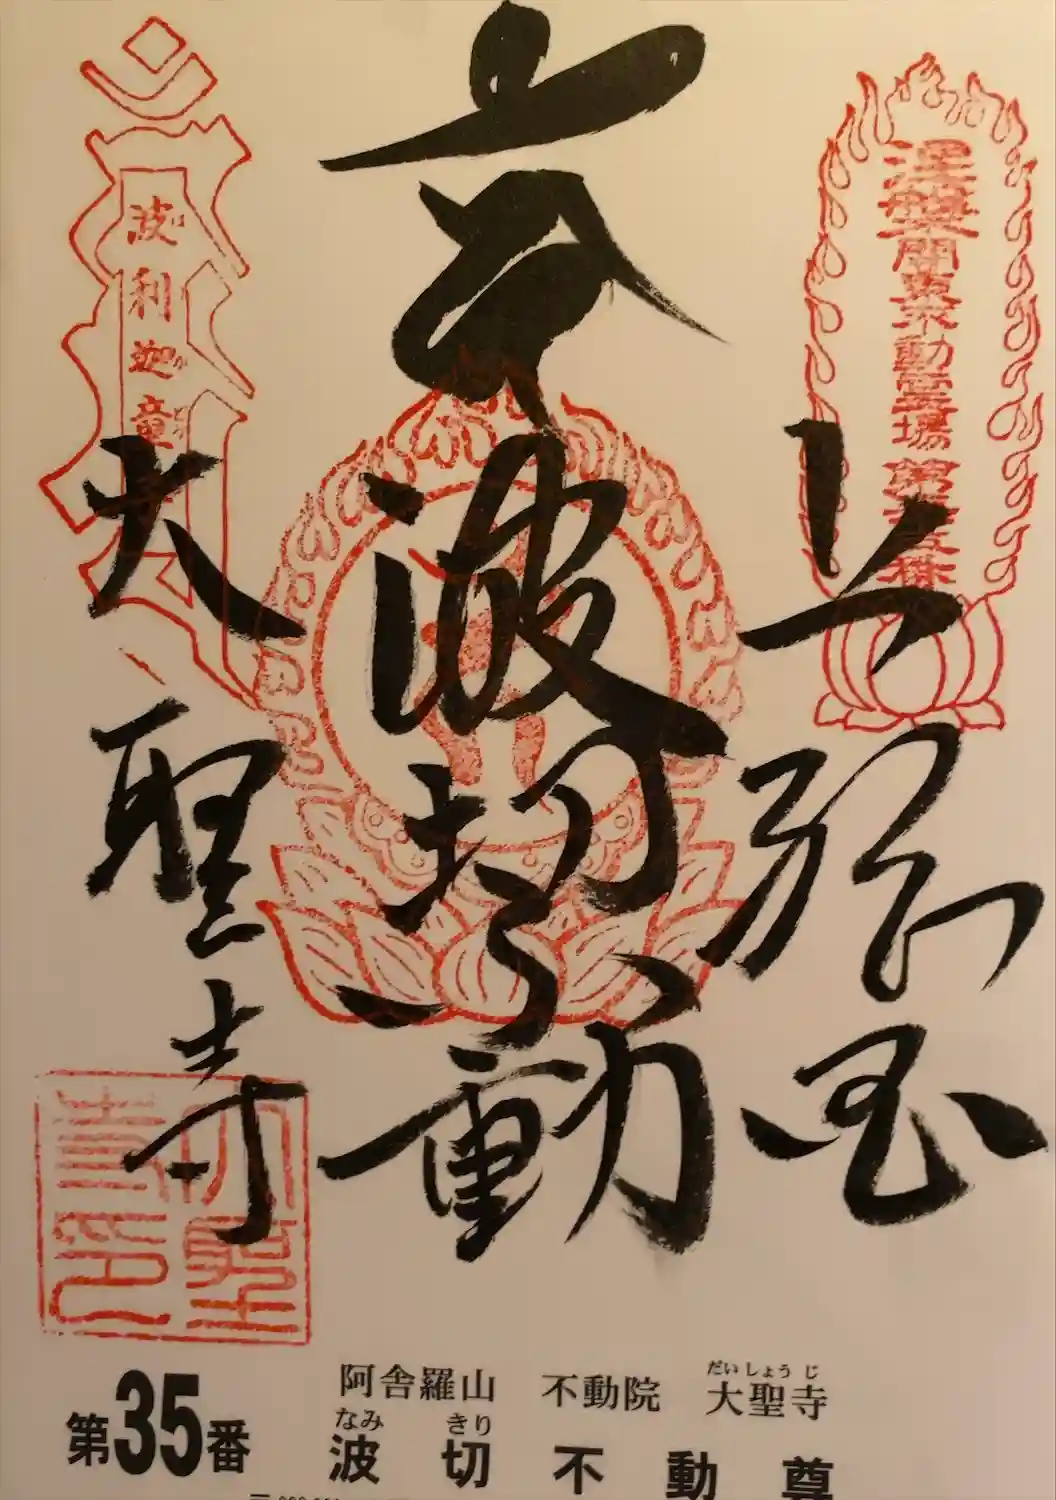 涅槃関東不動霊場第三十五番
上総国
波切不動
波利迦童
大聖寺
大聖
寺印
第35番
阿舎羅山 不動院 大聖寺
だいしょうじ
波切不動尊
なみ きり